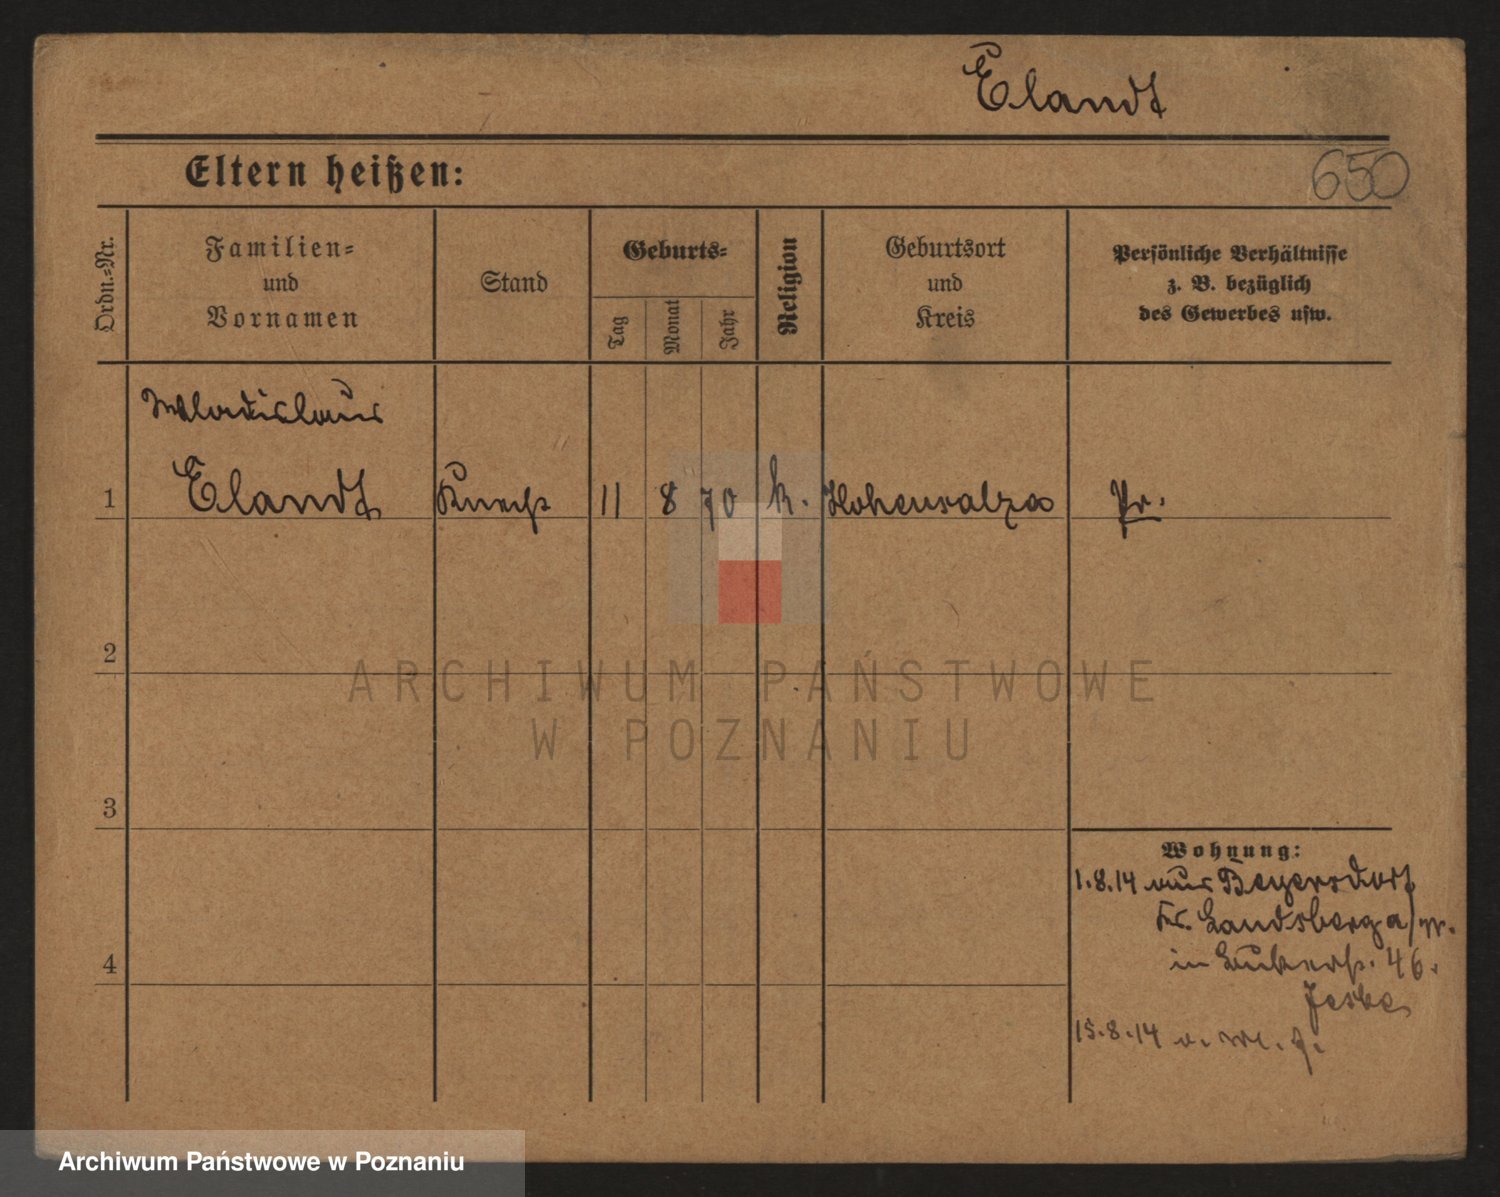 Elandt
Eltern heißen:
650
Ordn.=Nr.
Familien=
und
Vornamen
Stand
Geburts=
Tag
Monat
Jahr
Religion
Geburtsort
und
Kreis
Persönliche Verhältnisse
z. B. bezüglich
des Gewerbes usw.
Wladislaus
1 Elandt Knecht 11 8 70 k. Hohensalza Pr.
2
3
4
Wohnung:
1.8.14 aus Beyersdorf
Kr. Landsberg a/W.
in 46.
Jeske
15.8.14
ARCHIWUM PAŃSTWOWE
W POZNANIU
Archiwum Państwowe w Poznaniu